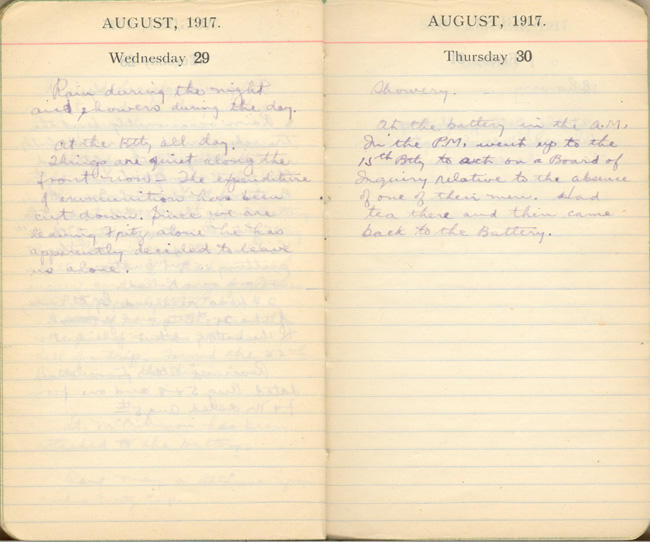 AUGUST, 1917.
Wednesday 29
Rain during the night
and showers during the day.
At the Bty all day.
Things are quiet along the
front now. The expenditure
of ammunition has been
cut down. Since we are
leaving Fritz alone he has
apparently decided to leave
us alone.
AUGUST, 1917.
Thursday 30
Showery.
At the battery in the A.M.
In the P.M. went up to the
15th Bty to act on a Board of
Inquiry relative to the absence
of one of their men. Had
tea there and then came
back to the Battery.